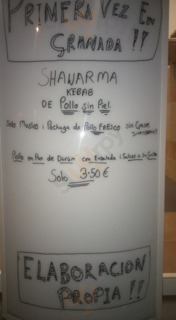 PRIMERA VEZ EN
GRANADA !!
SHAWARMA
KEBAB
DE Pollo sin Piel.
Solo Muslos i Pechuga de Pollo FRESCO sin Grasa
Pollo en Pan de Durum con Ensalada i Salsas a su Gusto
Solo 3.50 €
ELABORACION
PROPIA !!